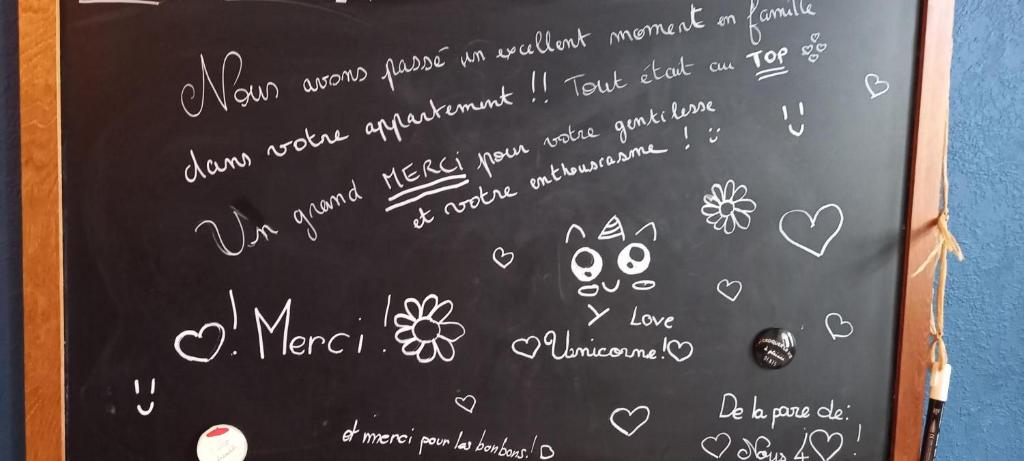 Nous avons passé un excellent moment en famille
dans votre appartement !! Tout était au TOP
Un grand MERCi pour votre gentilesse
et votre enthouscasme !
! Merci !
Y Love
Unicorne!
De la pare de:
et merci pour las bonbons!
Nous 4 !